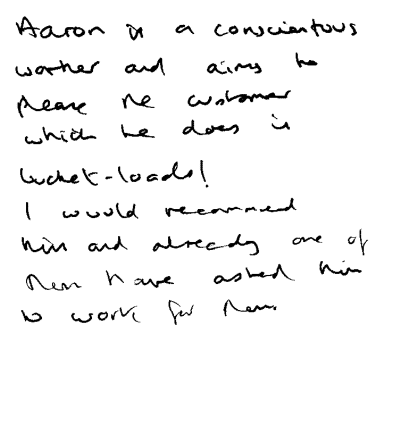 Aaron is a conscientous
worker and aims to
please the customer
which he does in
bucket-loads!
I would recommend
him and already one of
them have asked him
to work for them.